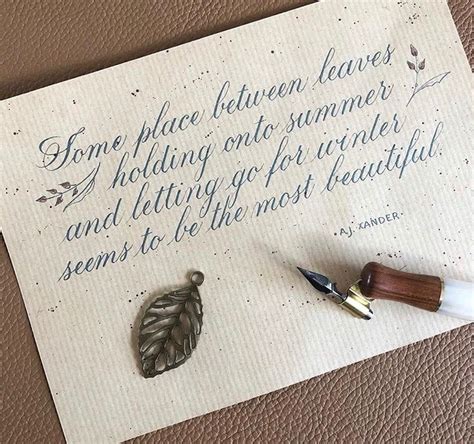 Some place between leaves
holding onto summer
and letting go for winter
seems to be the most beautiful.
A.J. XANDER